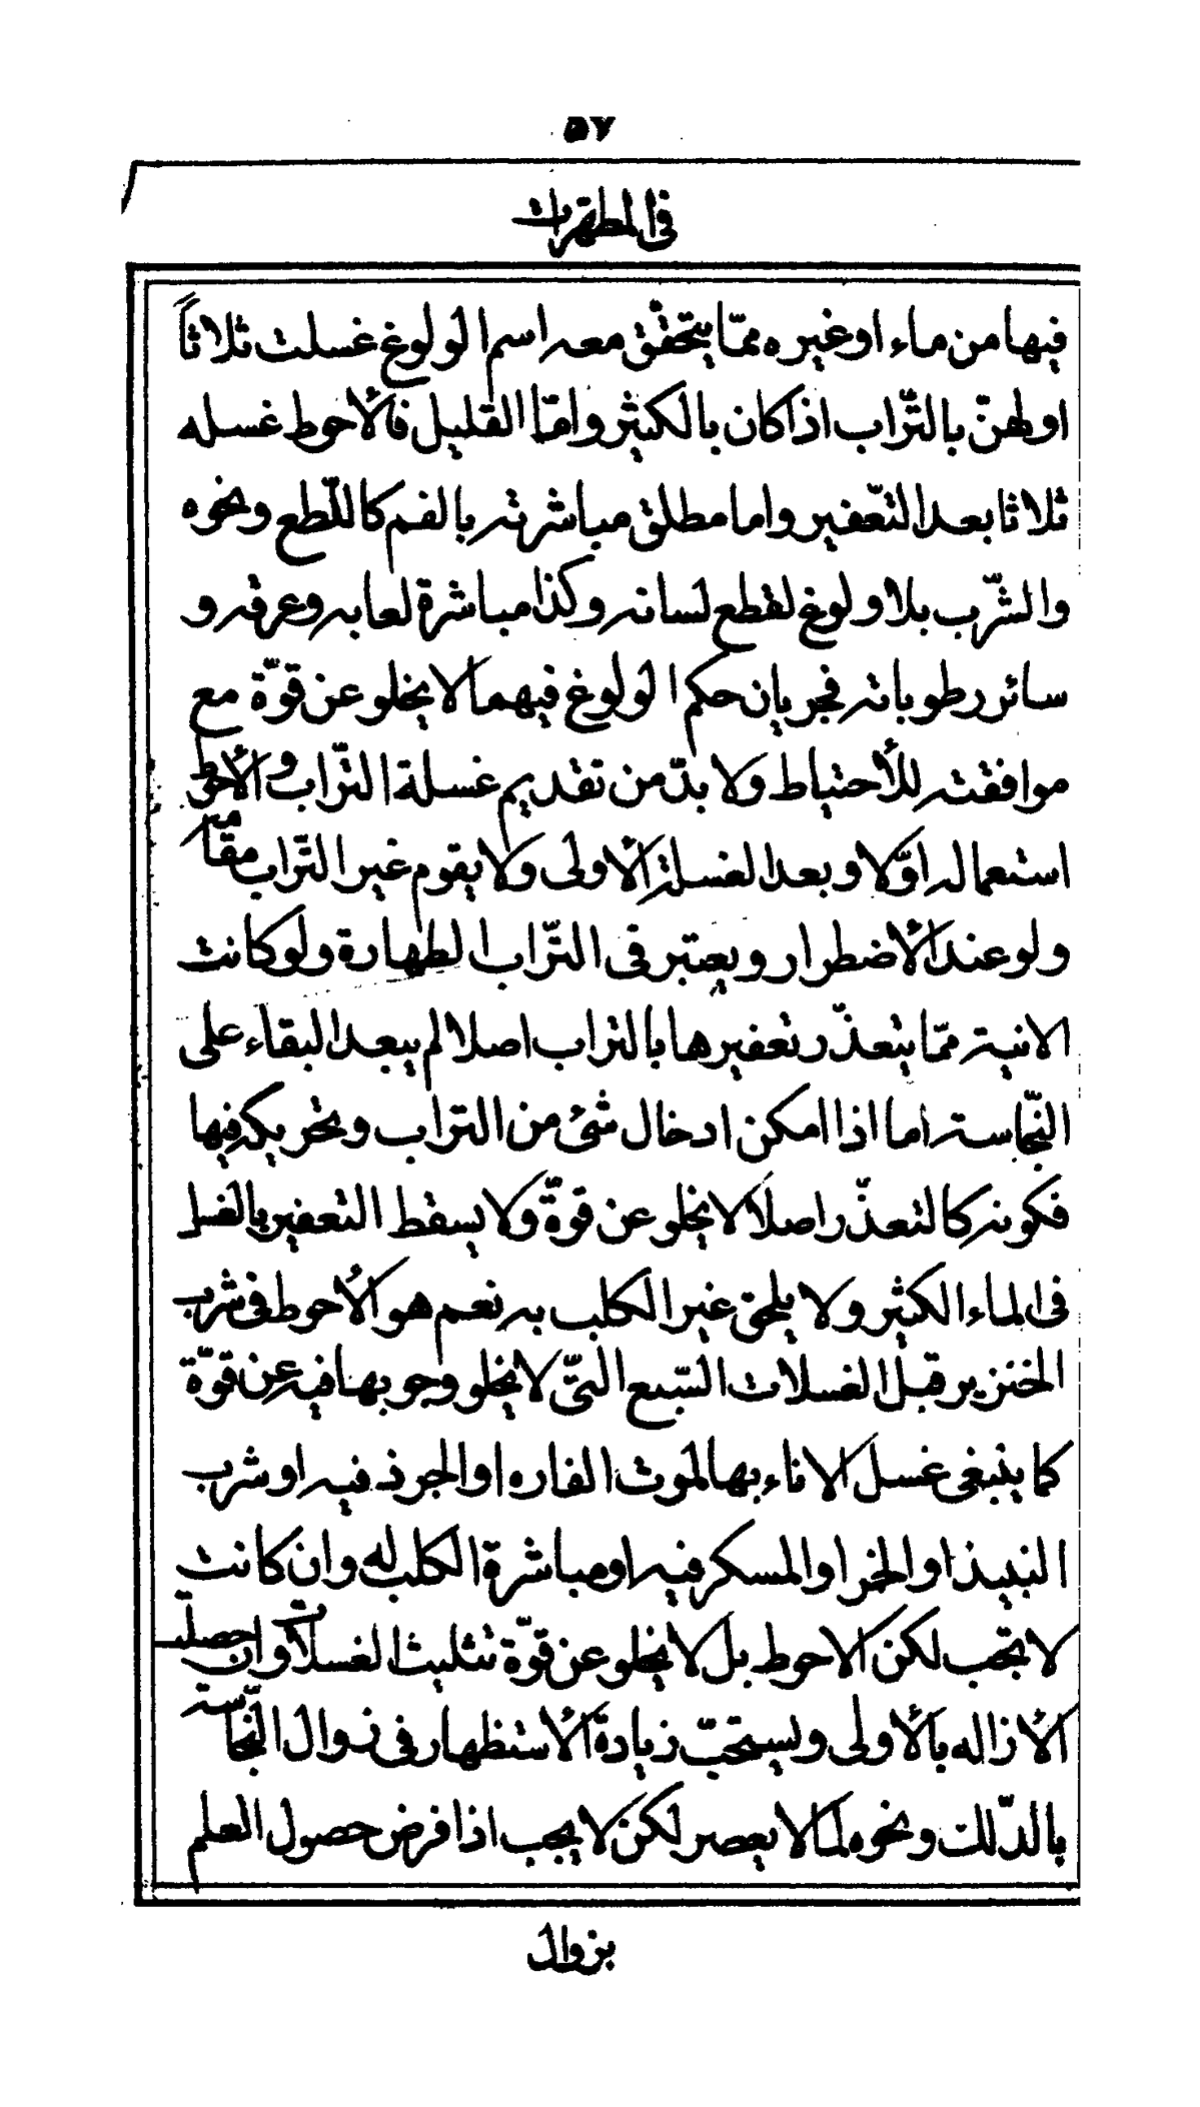 ٥٧
فى المطهرات
فيها من ماء او غيره ممّا يتحقّق معه اسم الولوغ غسلت ثلاثاً
اولهنّ بالتّراب اذا كان بالكثير وامّا القليل فالأحوط غسله
ثلاثا بعد التعّفير واما مطلق مباشرته بالفم كاللّطع ونحوه
والشّرب بلا ولوغ لقطع لسانه وكذا مباشرة لعابه وعرقه و
سائر رطوباته فجريان حكم الولوغ فيهما لا يخلو عن قوّة مع
موافقته للأحتياط ولا بدّ من تقديم غسلة التّراب والأحوط
استعماله اوّلا وبعد الغسلة الأولى ولا يقوم غير التّراب مقامه
ولو عند الأضطرار ويعتبر فى التّراب الطهارة ولو كانت
الانية ممّا يتعذّر تعفيرها بالتراب اصلا لم يبعد البقاء على
النّجاسة اما اذا امكن ادخال شئ من التراب وتحريكه فيها
فكونه كالتعذّر اصلا لا يخلو عن قوّة ولا يسقط التعفير بالغسل
فى الماء الكثير ولا يلحق غير الكلب به نعم هو الأحوط فى شرب
الخنزير قبل الغسلات السّبع الّتى لا يخلو وجوبها فيه عن قوّة
كما ينبغى غسل الاناء بها لموت الفاره او الجرذ فيه او شرب
النبيذ او الخمر او المسكر فيه او مباشرة الكلب له وان كانت
لا تجب لكن الاحوط بل لا يخلو عن قوّة تثليث الغسلات وان حصلت
الأزاله بالأولى ويستحبّ زيادة الأستظهار فى زوال النّجاسة
بالدّلك ونحوه لما لا يعصر لكن لا يجب اذا فرض حصول العلم
بزوال